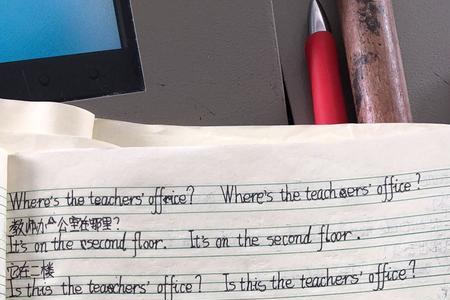 Where's the teachers' office? Where's the teachers' office?
教师办公室在哪里?
It's on the second floor. It's on the second floor.
它在二楼
Is this the teachers' office? Is this the teachers' office?